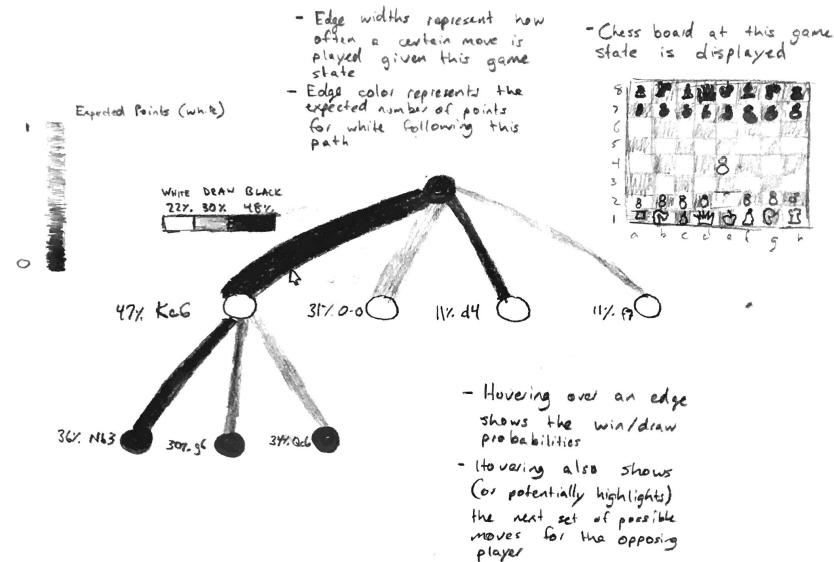 - Edge widths represent how
often a certain move is
played given this game
state
- Edge color represents the
expected number of points
for white following this
path
- Chess board at this game
state is displayed
Expected Points (white)
1
0
WHITE DRAW BLACK
22% 30% 48%
8
7
6
5
4
3
2
1
a b c d e f g h
47% Kc6
31% 0-0
11% d4
11%
36% Nb3
30% g6
34% Qc6
- Hovering over an edge
shows the win/draw
probabilities
- Hovering also shows
(or potentially highlights)
the next set of possible
moves for the opposing
player